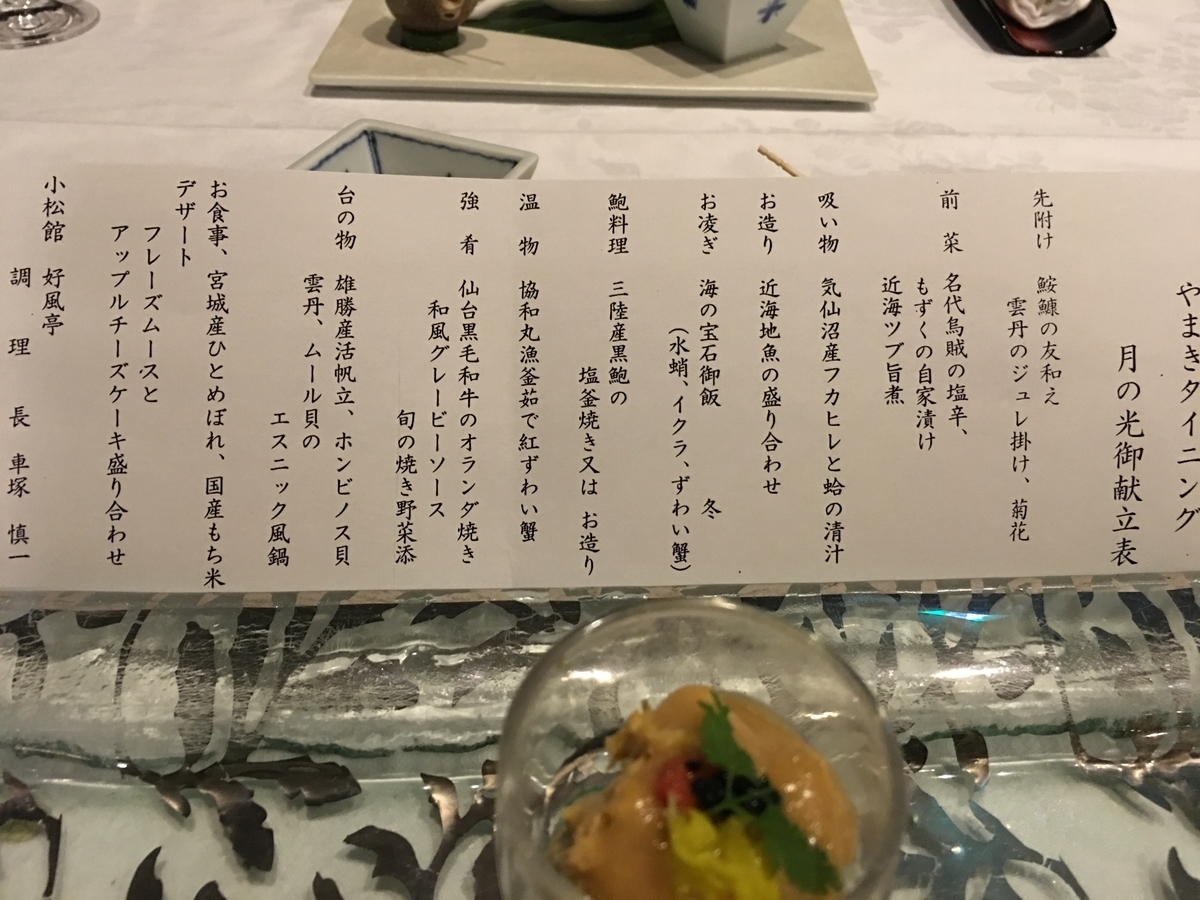 やまきダイニング
月の光御献立表
先附け 鮟鱇の友和え
雲丹のジュレ掛け、菊花
前菜 名代烏賊の塩辛、
もずくの自家漬け
近海ツブ旨煮
吸い物 気仙沼産フカヒレと蛤の清汁
お造り 近海地魚の盛り合わせ
お凌ぎ 海の宝石御飯 冬
(水蛸、イクラ、ずわい蟹)
鮑料理 三陸産黒鮑の
塩釜焼き又は お造り
温物 協和丸漁釜茹で紅ずわい蟹
強肴 仙台黒毛和牛のオランダ焼き
和風グレービーソース
旬の焼き野菜添
台の物 雄勝産活帆立、ホンビノス貝
雲丹、ムール貝の
エスニック風鍋
お食事、宮城産ひとめぼれ、国産もち米
デザート
フレーズムースと
アップルチーズケーキ盛り合わせ
小松館 好風亭
調理長 車塚 慎一